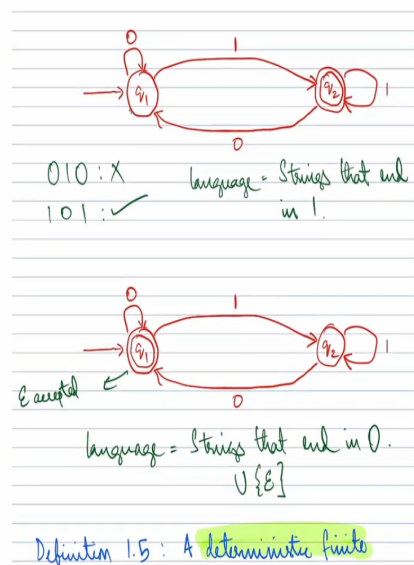 0
1
q1
q2
1
0
010 : X
language = Strings that end
101 : ✓
in 1.
0
1
q1
q2
1
ε accepted
0
language = Strings that end in 0.
∪ {ε}
Definition 1.5 : A deterministic finite